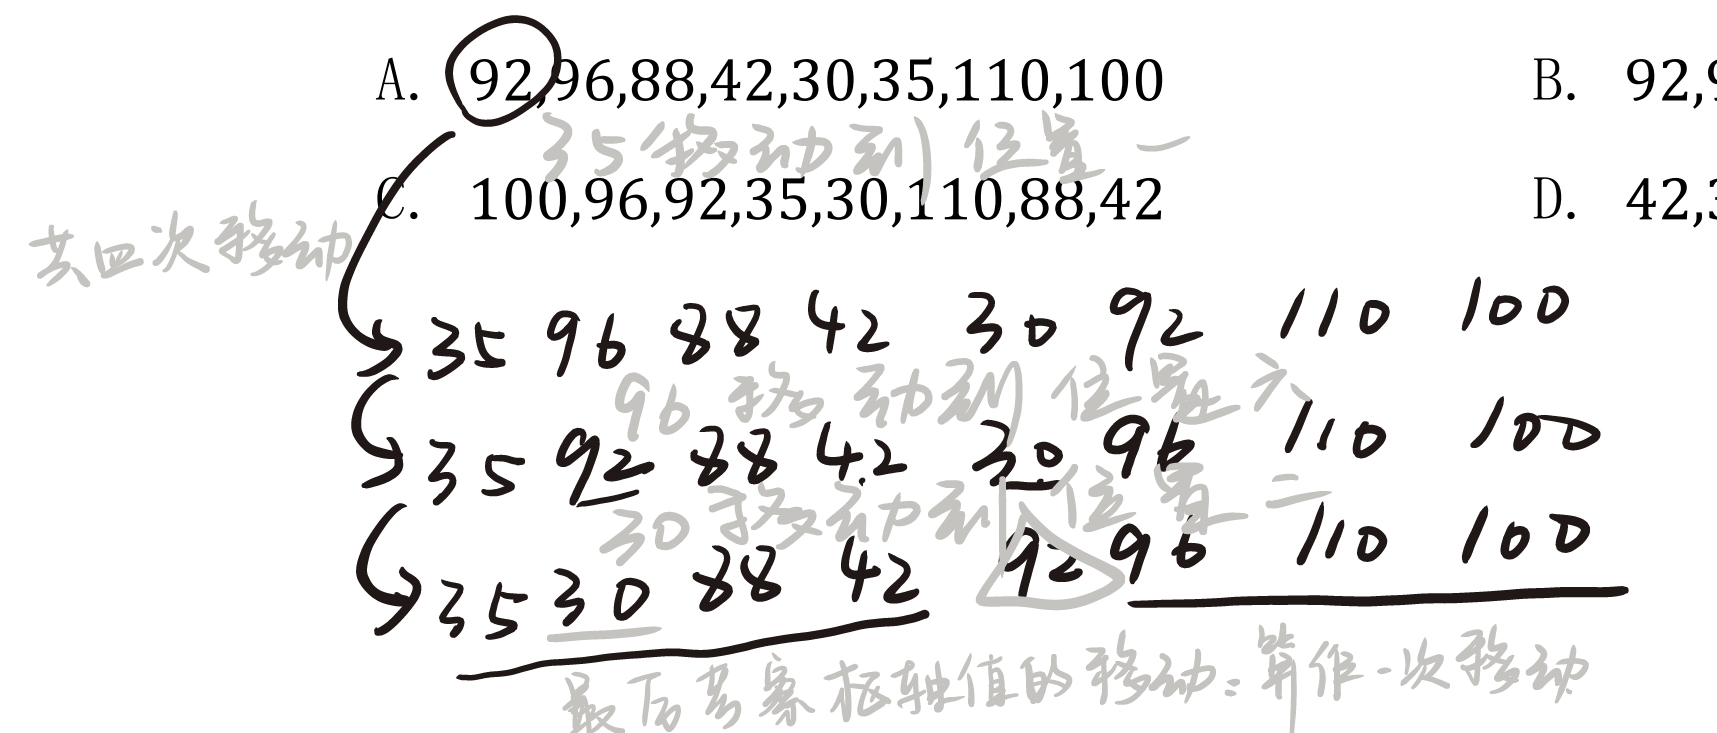 A. 92,96,88,42,30,35,110,100
B. 92,9
35移动到位置一
C. 100,96,92,35,30,110,88,42
D. 42,3
共四次移动
35 96 88 42 30 92 110 100
96移动到位置六
35 92 88 42 30 96 110 100
30移动到位置二
35 30 88 42 92 96 110 100
最后考察枢轴值的移动:算作一次移动